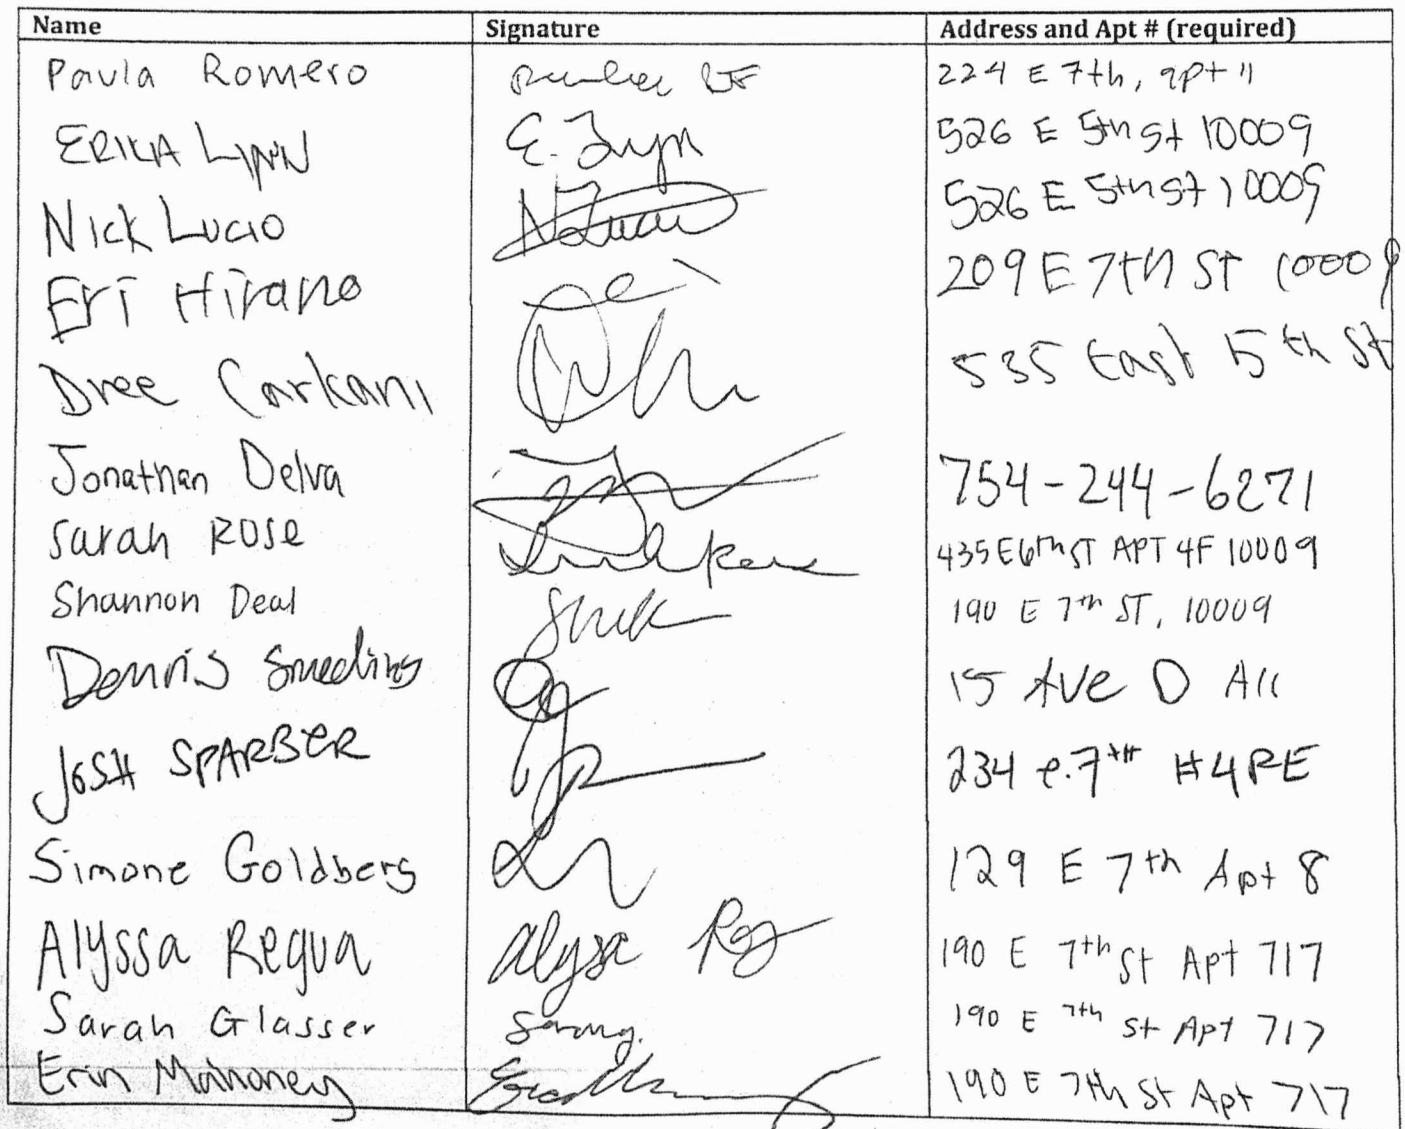 Name Signature Address and Apt # (required)
Paula Romero 224 E 7th, apt 11
ERIKA LYNN E. Lynn 526 E 5th St 10009
Nick Lucio N Lucio 526 E 5th St 10009
Eri Hirano 209 E 7th St 10009
Dree Carkani 535 East 5th St
Jonathan Delva 754-244-6271
Sarah Rose 435 E 6th ST APT 4F 10009
Shannon Deal 190 E 7th ST, 10009
Dennis 15 Ave D
JOSH SPARBER 234 e. 7th #4RE
Simone Goldberg 129 E 7th Apt 8
Alyssa Regua Alyssa 190 E 7th St Apt 717
Sarah Glasser 190 E 7th St Apt 717
Erin Mahoney 190 E 7th St Apt 717